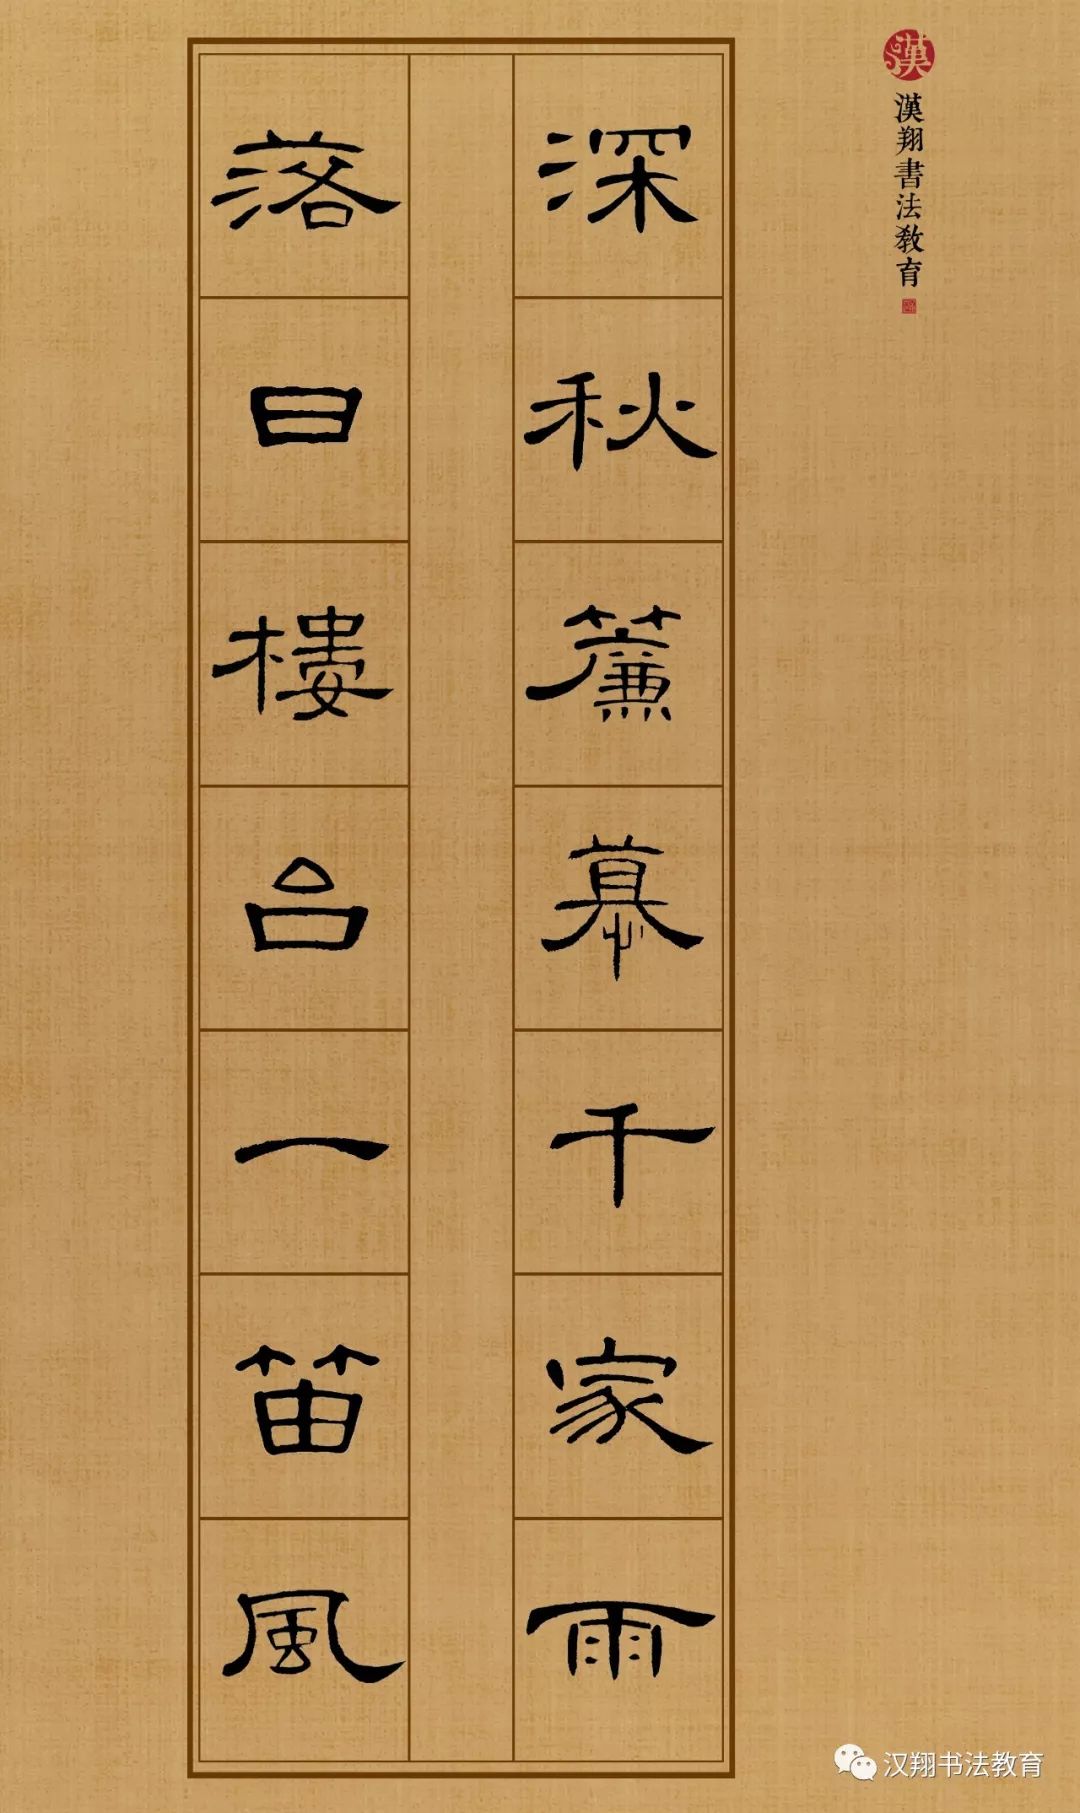 漢
漢翔書法教育
深秋簾慕千家雨
落日樓台一笛風
汉翔书法教育